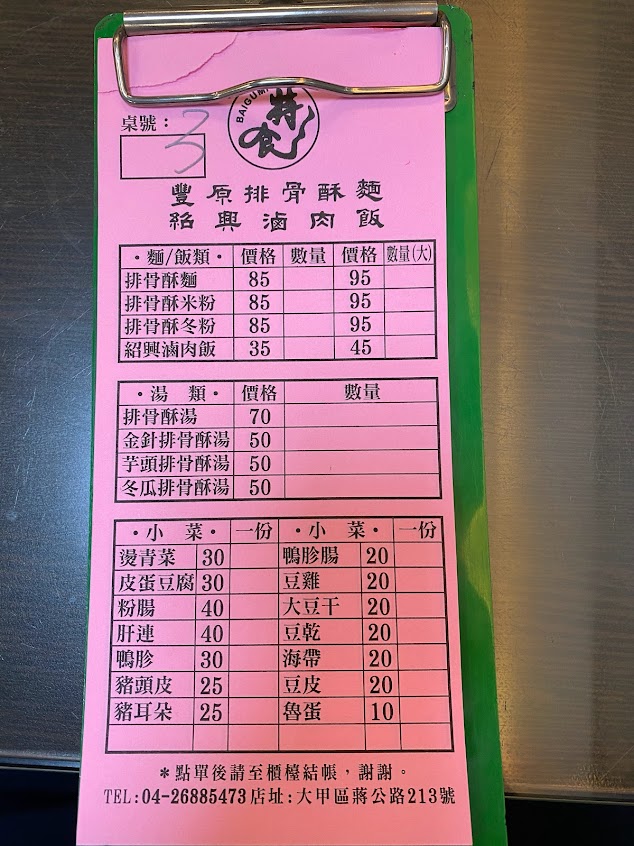 BAIGUM
特食
桌號：
3
豐原排骨酥麵
紹興滷肉飯
・麵/飯類・ 價格 數量 價格 數量(大)
排骨酥麵 85 95
排骨酥米粉 85 95
排骨酥冬粉 85 95
紹興滷肉飯 35 45
・湯 類・ 價格 數量
排骨酥湯 70
金針排骨酥湯 50
芋頭排骨酥湯 50
冬瓜排骨酥湯 50
・小 菜・ 一份 ・小 菜・ 一份
燙青菜 30 鴨胗腸 20
皮蛋豆腐 30 豆雞 20
粉腸 40 大豆干 20
肝連 40 豆乾 20
鴨胗 30 海帶 20
豬頭皮 25 豆皮 20
豬耳朵 25 魯蛋 10
＊點單後請至櫃檯結帳，謝謝。
TEL:04-26885473店址:大甲區蔣公路213號